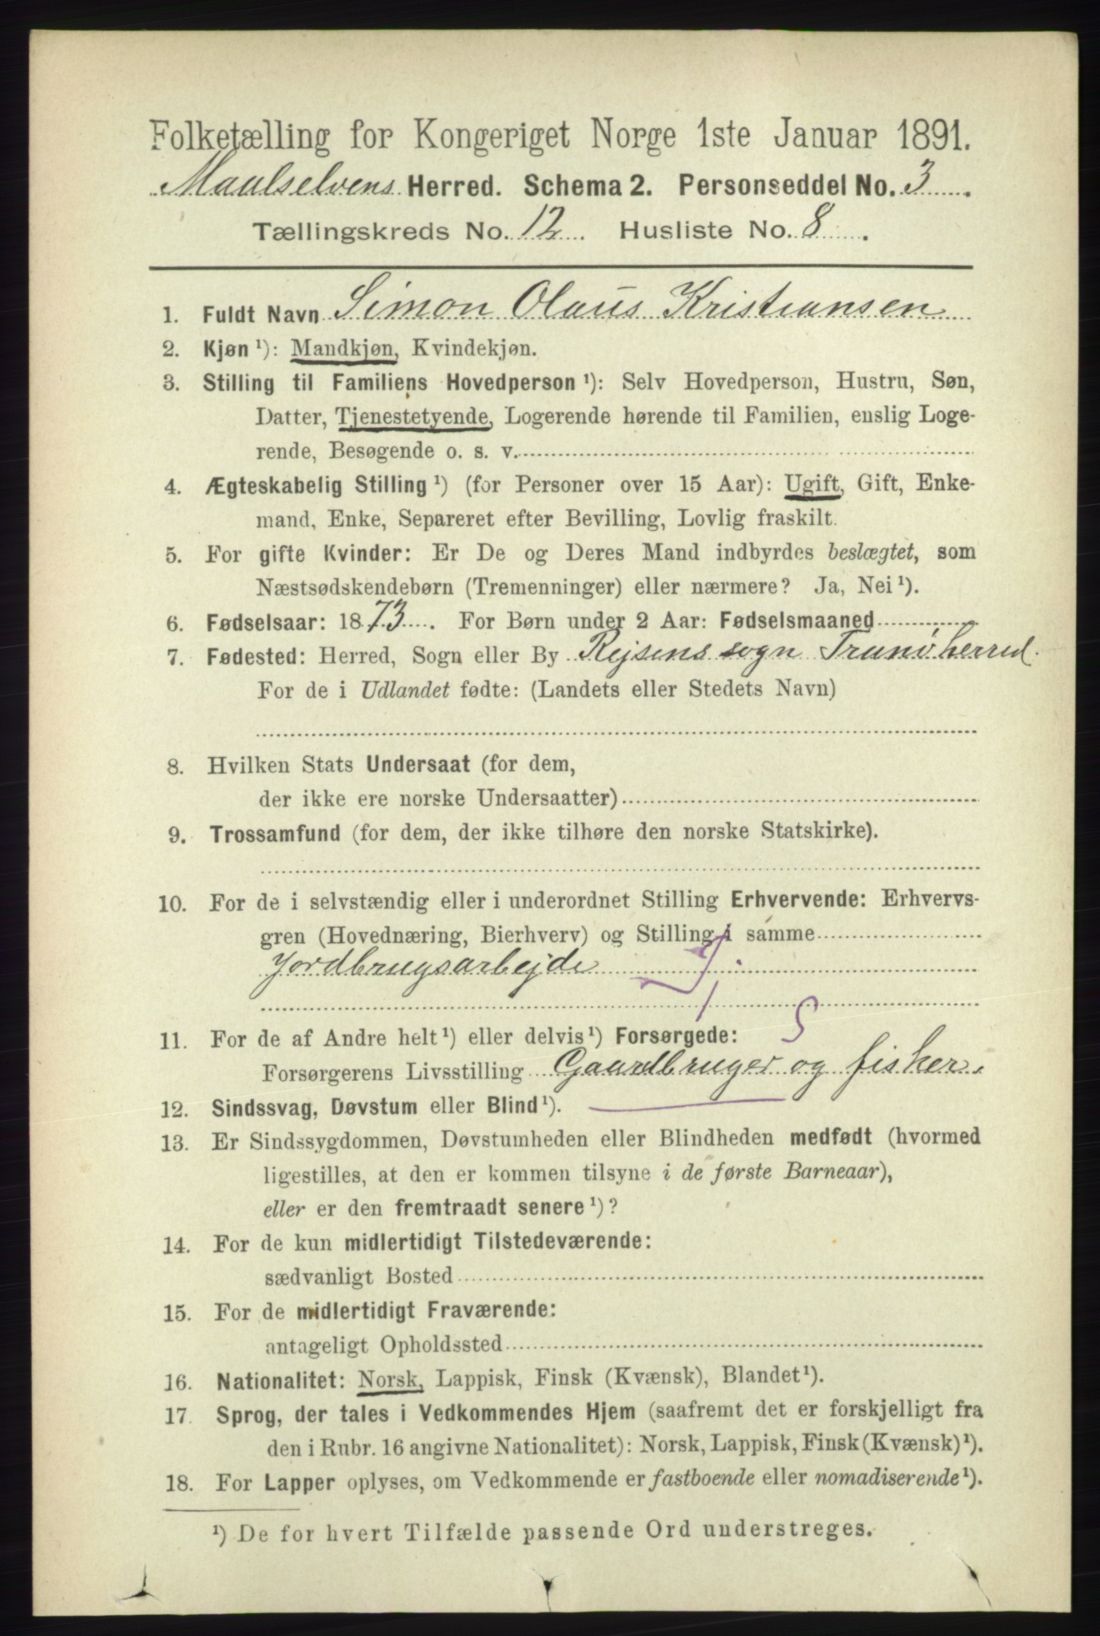 Folketælling for Kongeriget Norge 1ste Januar 1891.
Maalselvens Herred. Schema 2. Personseddel No. 3.
Tællingskreds No. 12. Husliste No. 8.
1. Fuldt Navn Simon Olaus Kristiansen
2. Kjøn ¹): Mandkjøn, Kvindekjøn.
3. Stilling til Familiens Hovedperson ¹): Selv Hovedperson, Hustru, Søn,
Datter, Tjenestetyende, Logerende hørende til Familien, enslig Loge-
rende, Besøgende o. s. v.
4. Ægteskabelig Stilling ¹) (for Personer over 15 Aar): Ugift, Gift, Enke-
mand, Enke, Separeret efter Bevilling, Lovlig fraskilt.
5. For gifte Kvinder: Er De og Deres Mand indbyrdes beslægtet, som
Næstsødskendebørn (Tremenninger) eller nærmere? Ja, Nei ¹).
6. Fødselsaar: 1873. For Børn under 2 Aar: Fødselsmaaned
7. Fødested: Herred, Sogn eller By Rejsens sogn Tranø herred.
For de i Udlandet fødte: (Landets eller Stedets Navn)
8. Hvilken Stats Undersaat (for dem,
der ikke ere norske Undersaatter)
9. Trossamfund (for dem, der ikke tilhøre den norske Statskirke).
10. For de i selvstændig eller i underordnet Stilling Erhvervende: Erhvervs-
gren (Hovednæring, Bierhverv) og Stilling i samme
Jordbrugsarbejde
11. For de af Andre helt ¹) eller delvis ¹) Forsørgede:
Forsørgerens Livsstilling Gaardbruger og fisker.
12. Sindssvag, Døvstum eller Blind ¹).
13. Er Sindssygdommen, Døvstumheden eller Blindheden medfødt (hvormed
ligestilles, at den er kommen tilsyne i de første Barneaar),
eller er den fremtraadt senere ¹)?
14. For de kun midlertidigt Tilstedeværende:
sædvanligt Bosted
15. For de midlertidigt Fraværende:
antageligt Opholdssted
16. Nationalitet: Norsk, Lappisk, Finsk (Kvænsk), Blandet ¹).
17. Sprog, der tales i Vedkommendes Hjem (saafremt det er forskjelligt fra
den i Rubr. 16 angivne Nationalitet): Norsk, Lappisk, Finsk (Kvænsk) ¹).
18. For Lapper oplyses, om Vedkommende er fastboende eller nomadiserende ¹).
¹) De for hvert Tilfælde passende Ord understreges.